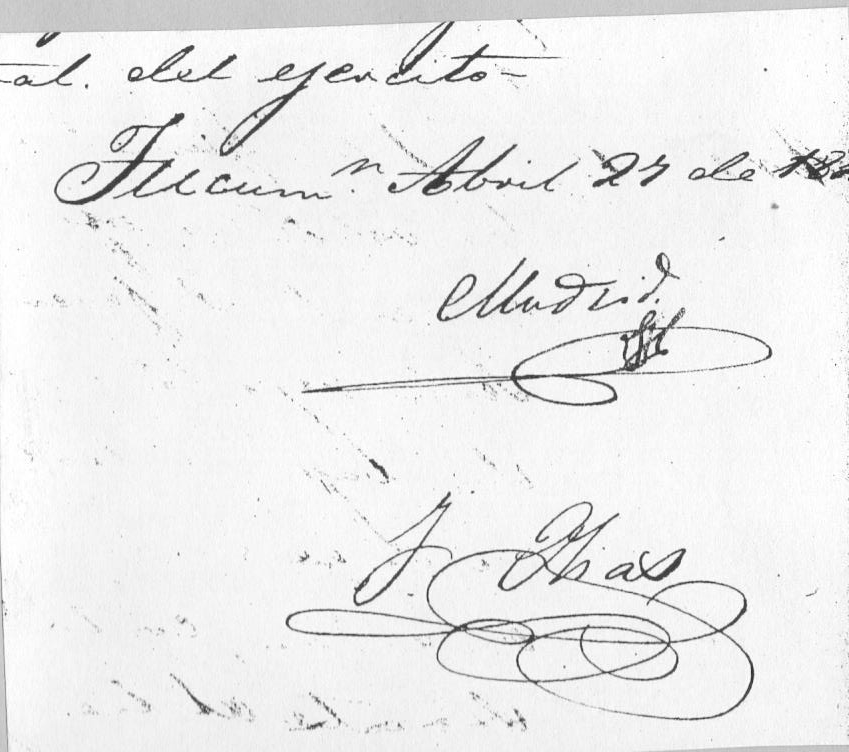 al. del ejercito
Tucumn. Abril 27 de 18
Madrid.
J. Dias